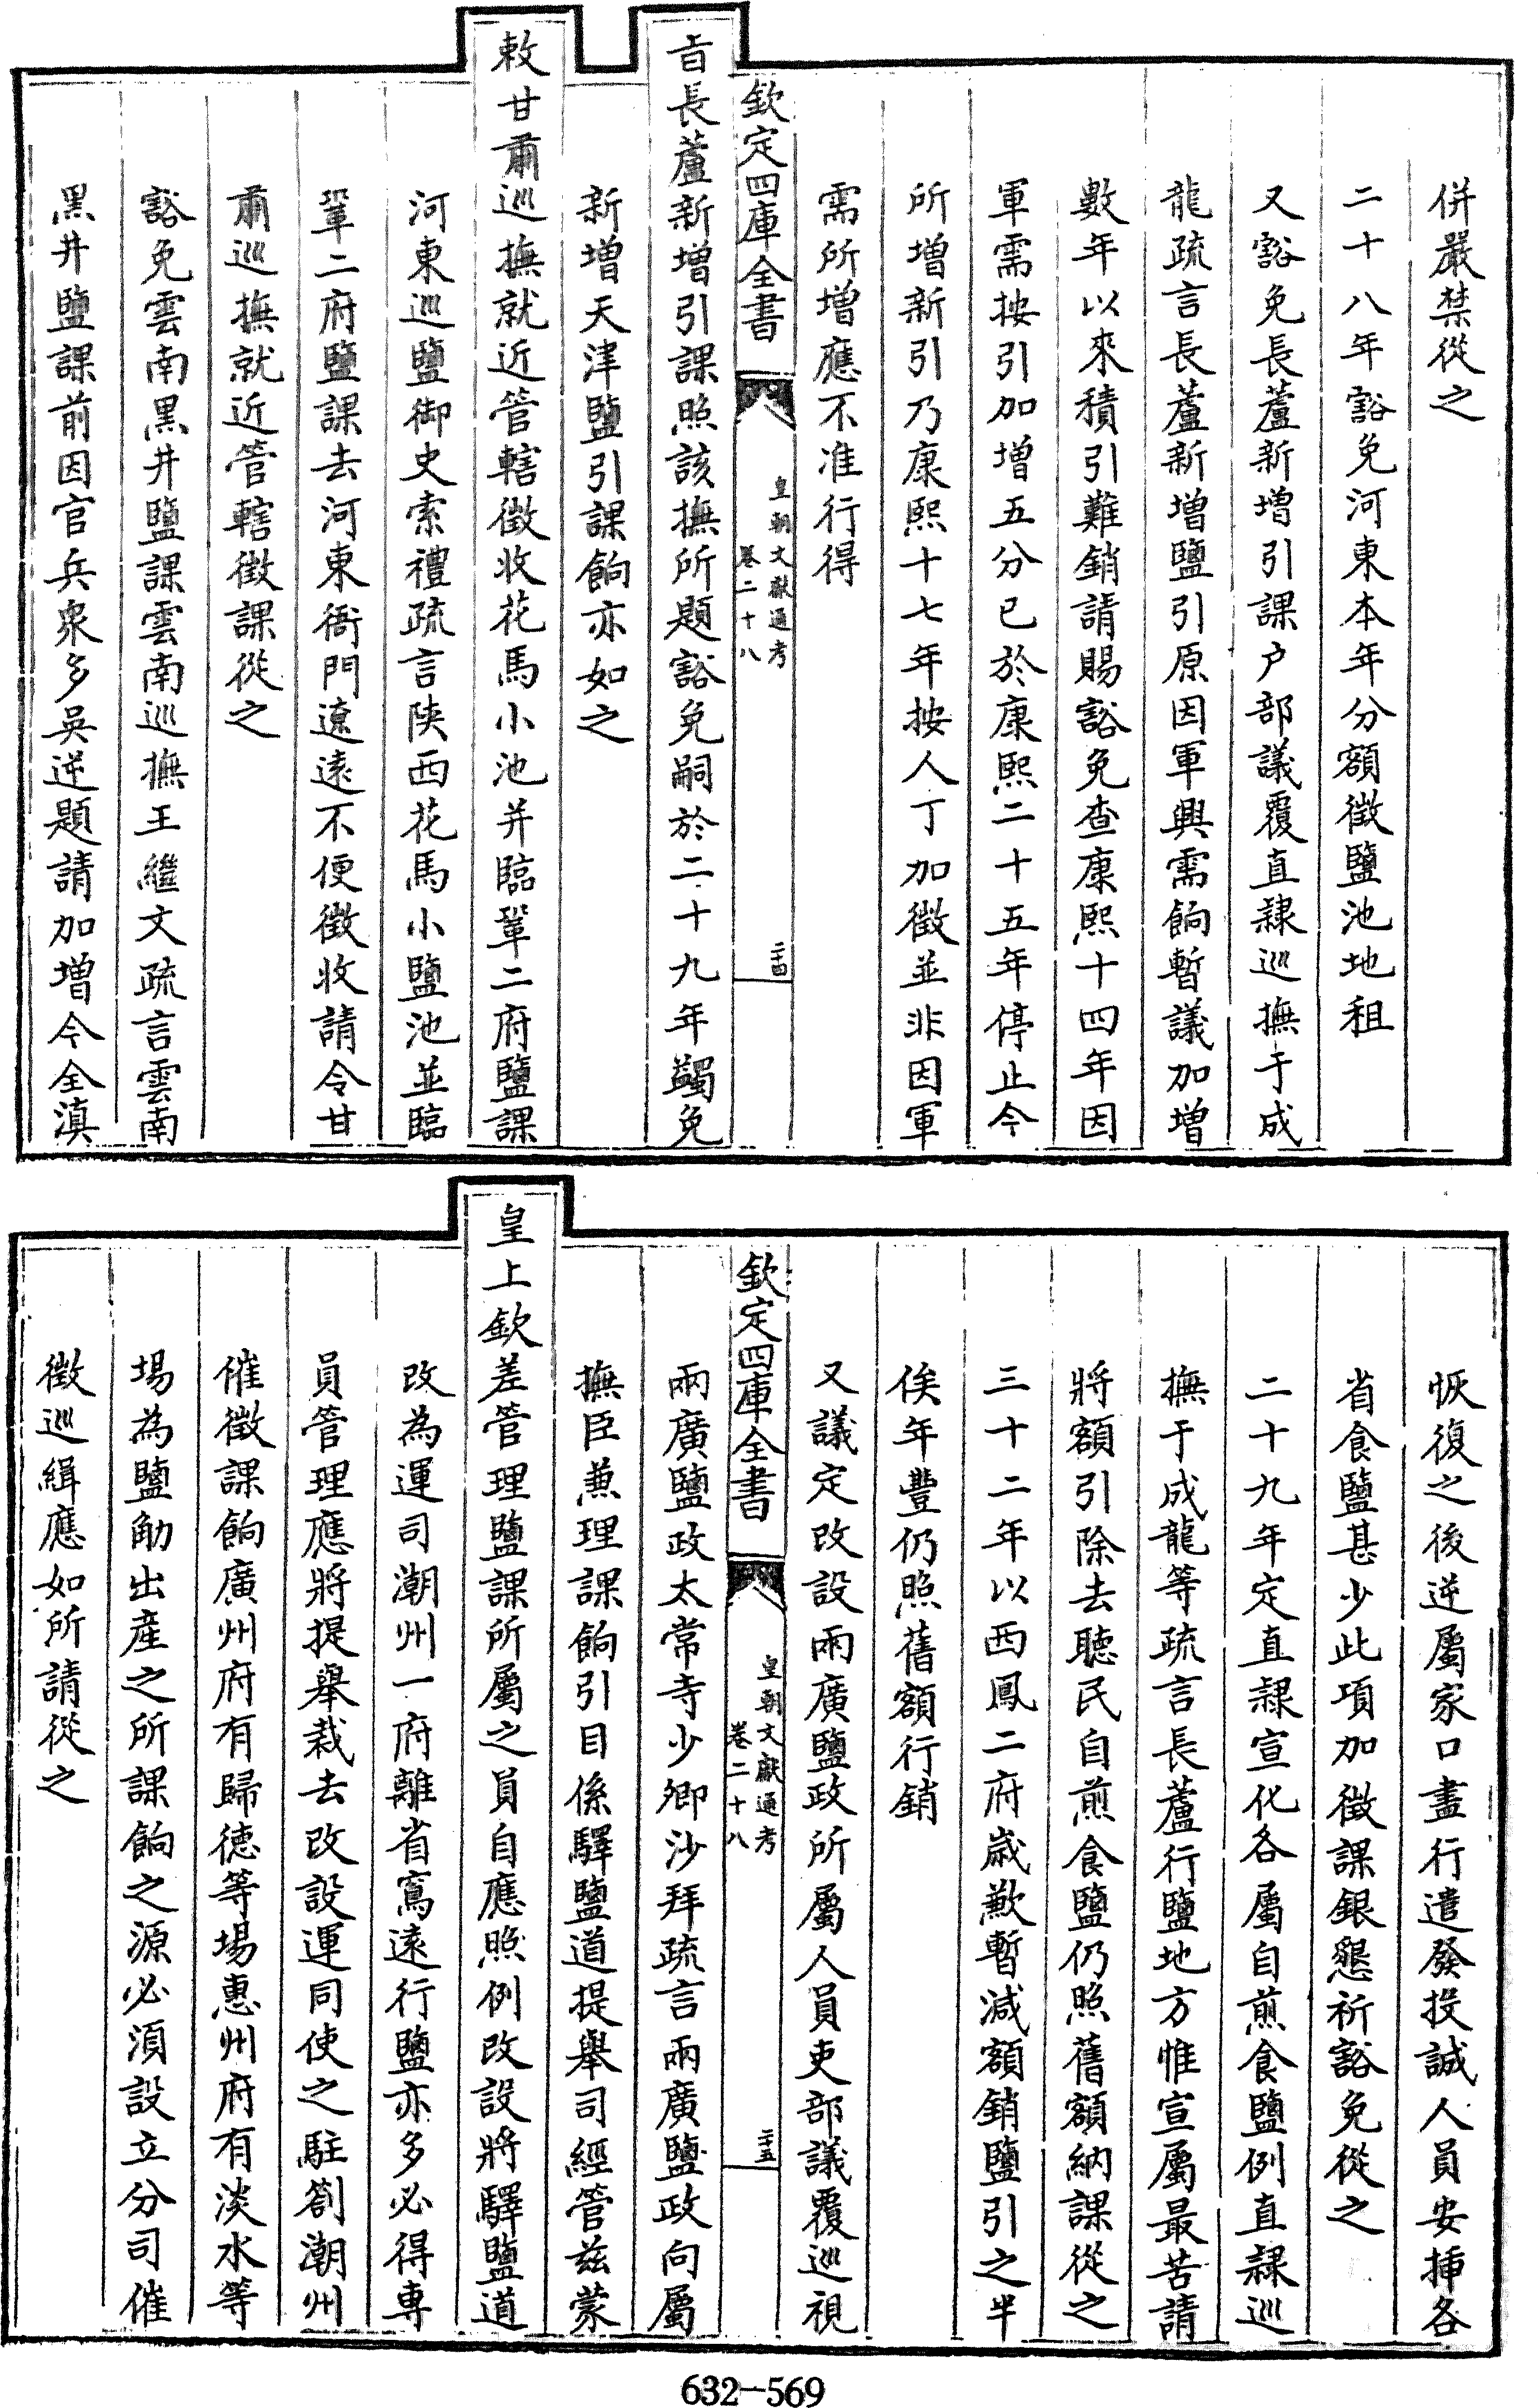 併嚴禁從之
二十八年豁免河東本年分額徵鹽池地租
又豁免長蘆新增引課户部議覆直隸巡撫于成
龍疏言長蘆新增鹽引原因軍興需餉暫議加增
數年以來積引難銷請賜豁免查康熙十四年因
軍需按引加增五分已於康熙二十五年停止今
所增新引乃康熙十七年按人丁加徵並非因軍
需所增應不准行得
欽定四庫全書
皇朝文獻通考
卷二十八
二十四
旨長蘆新增引課照該撫所題豁免嗣於二十九年蠲免
新增天津鹽引課餉亦如之
敕甘肅巡撫就近管轄徵收花馬小池并臨鞏二府鹽課
河東巡鹽御史索禮疏言陝西花馬小鹽池並臨
鞏二府鹽課去河東衙門遼遠不便徵收請令甘
肅巡撫就近管轄徵課從之
豁免雲南黑井鹽課雲南巡撫王繼文疏言雲南
黑井鹽課前因官兵衆多吳逆題請加增今全滇
恢復之後逆屬家口盡行遣發投誠人員安揷各
省食鹽甚少此項加徵課銀懇祈豁免從之
二十九年定直隸宣化各屬自煎食鹽例直隸巡
撫于成龍等疏言長蘆行鹽地方惟宣屬最苦請
將額引除去聽民自煎食鹽仍照舊額納課從之
三十二年以西鳳二府歲歉暫減額銷鹽引之半
俟年豐仍照舊額行銷
又議定改設兩廣鹽政所屬人員吏部議覆巡視
欽定四庫全書
皇朝文獻通考
卷二十八
二十五
兩廣鹽政太常寺少卿沙拜疏言兩廣鹽政向屬
撫臣兼理課餉引目係驛鹽道提舉司經管茲蒙
皇上欽差管理鹽課所屬之員自應照例改設將驛鹽道
改為運司潮州一府離省窵遠行鹽亦多必得專
員管理應將提舉裁去改設運同使之駐劄潮州
催徵課餉廣州府有歸德等場惠州府有淡水等
場為鹽觔出産之所課餉之源必須設立分司催
徵巡緝應如所請從之
632-569